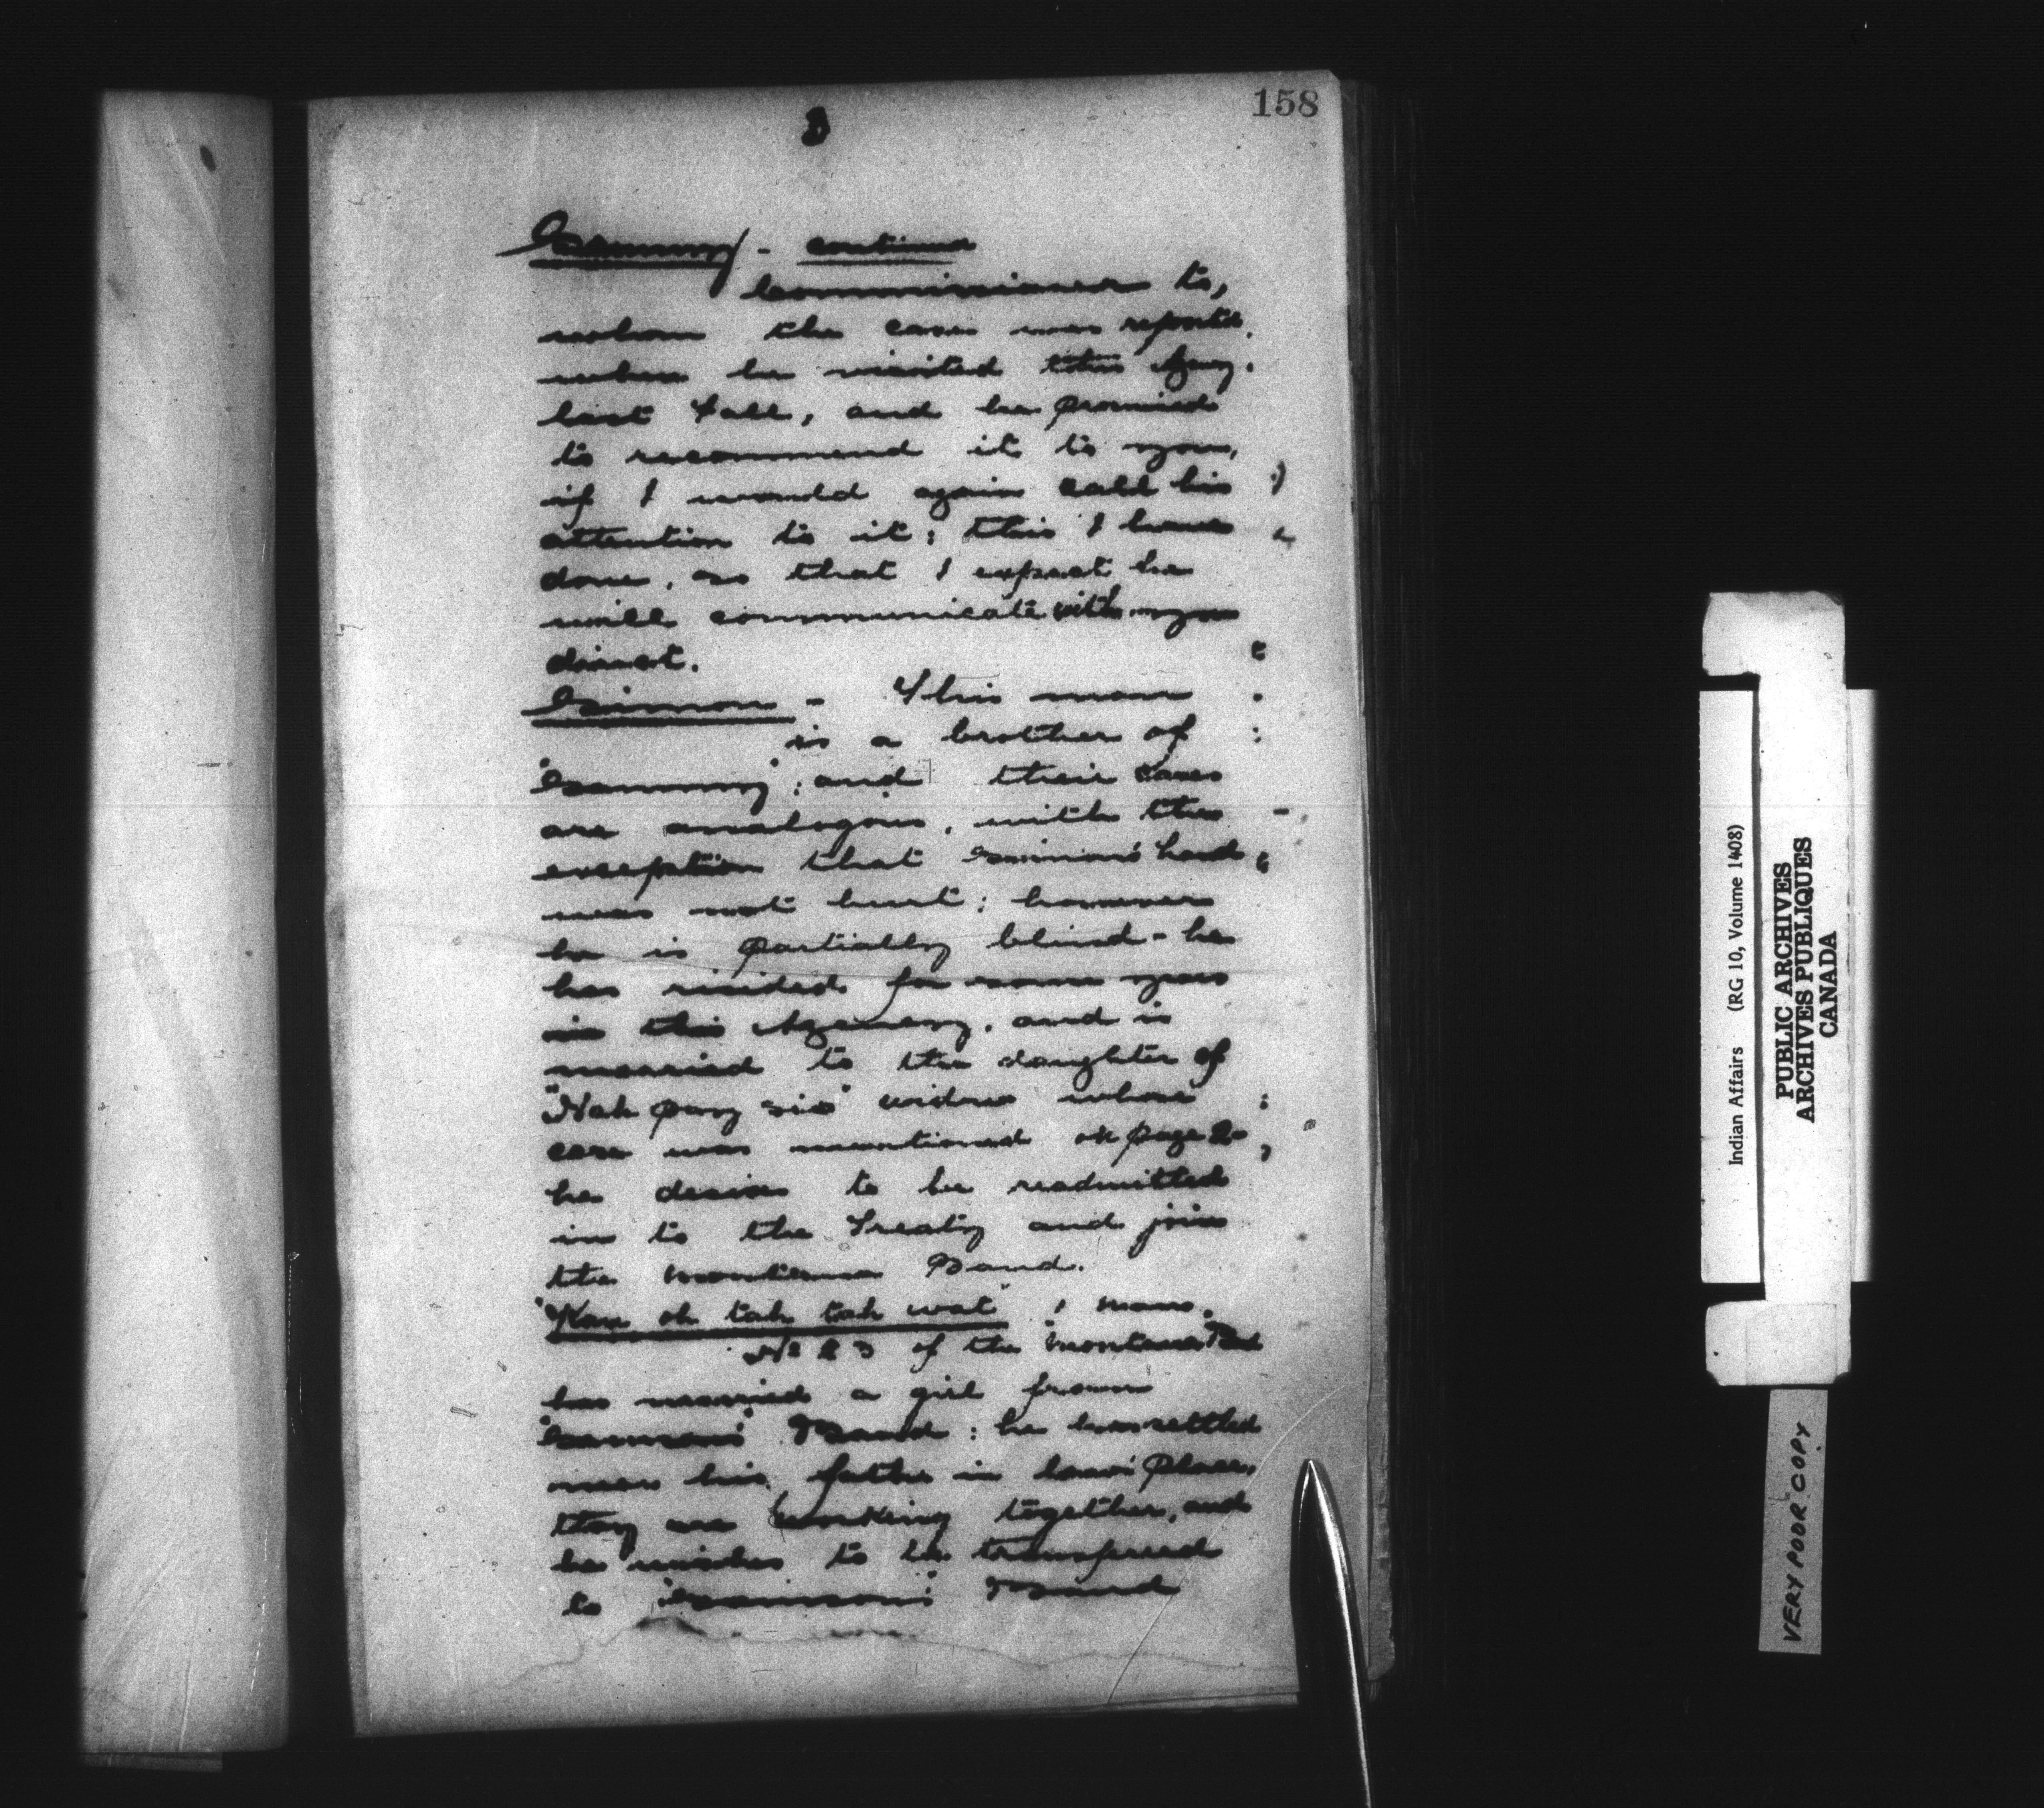 158
3
Sammy - continued
Commissioner to,
whom the case was reported
when he visited this Agcy.
last Fall, and he promised
to recommend it to you,
if I would again call his
attention to it; this I have
done, so that I expect he
will communicate with you
direct.
Simon - This man
is a brother of
"Sammy"; and their cases
are analogous, with the
exception that Simon's head
was not hurt; however
he is partially blind - he
has resided for some years
in this Agency, and is
married to the daughter of
"Nah pay sis" widow whose
case was mentioned on page 2
he desires to be readmitted
in to the Treaty and join
the Montana Band.
"Kau ok tah tah wat" 1 man.
No 23 of the Montana Bd
has married a girl from
"Samson's" Band: he has settled
near his father in law's place,
they are working together, and
he wishes to be transferred
to "Samson's" Band
Indian Affairs (RG 10, Volume 1408)
PUBLIC ARCHIVES
ARCHIVES PUBLIQUES
CANADA
VERY POOR COPY